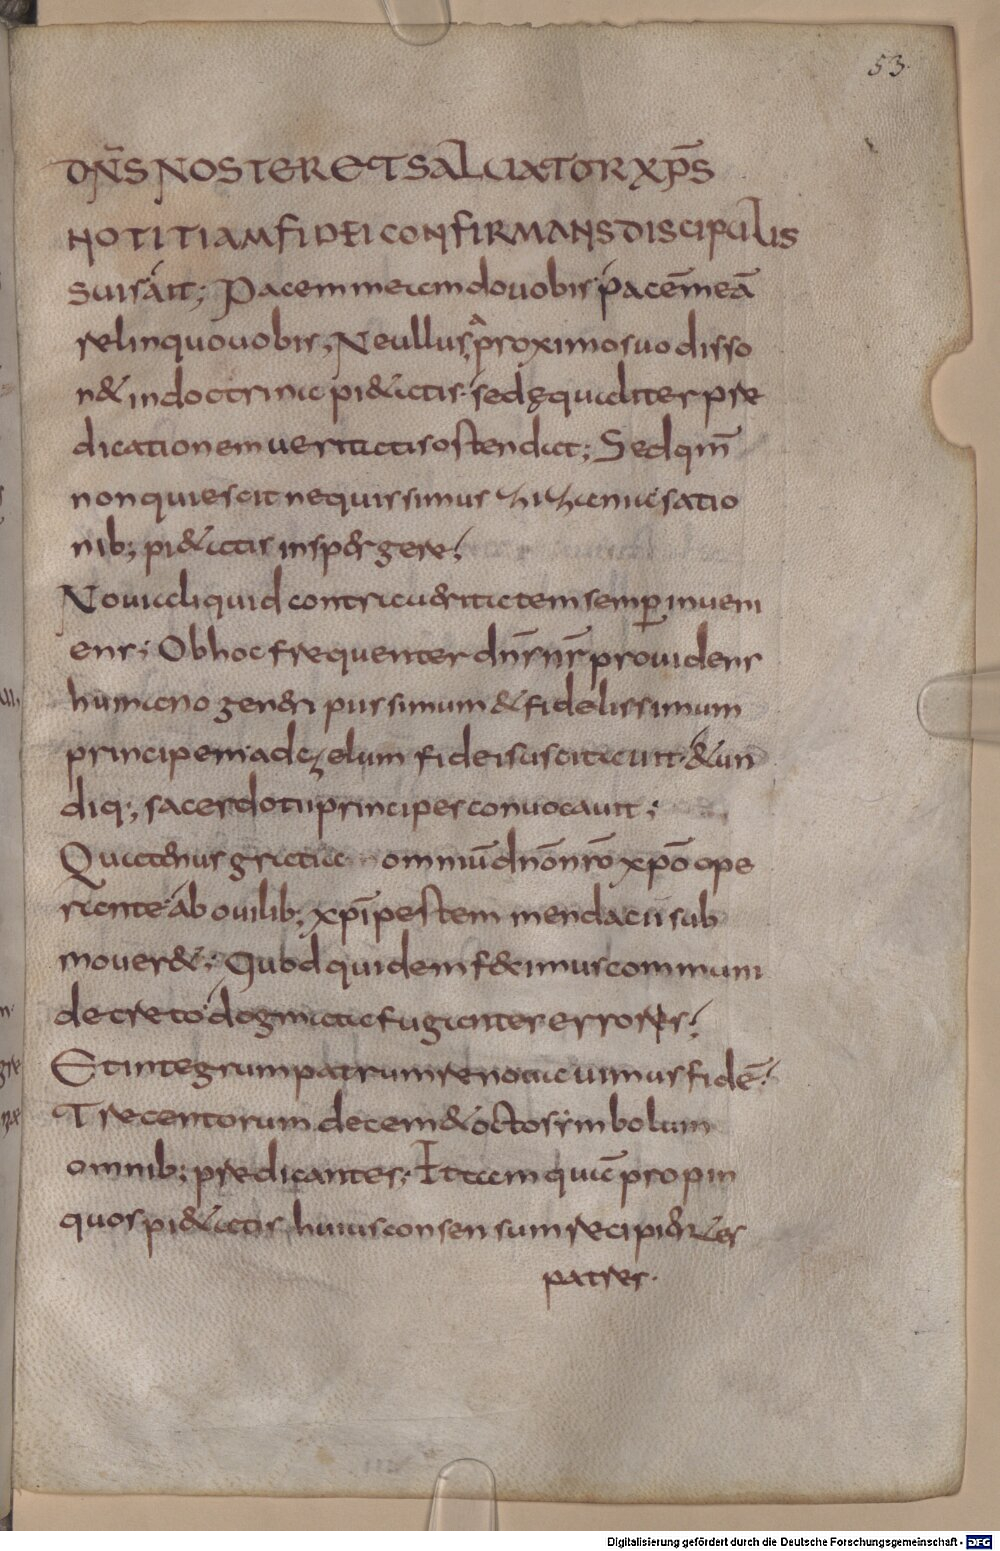 53.
DN̄S NOSTER ET SALUATOR XP̄S
NOTITIAM FIDEI CONFIRMANS DISCIPULIS
suis ait; Pacem meam do uobis pacē meā
relinquo uobis; Ne ullus a proximo suo disso
n& in doctrina pi&atis. sed ęqualiter pre
dicationem ueritatis ostendat; Sed qm̄
non quiescit nequissimus zizaniis satio
nib; pi&atis inspergere;
Nouu aliquid contra ueritatem semper inueni
ens; Ob hoc frequenter dn̄s nr̄ prouidens
humano generi piissimum & fidelissimum
principem ad zelum fidei suscitauit. & un
diq; sacerdotii principes conuocauit;
Quatenus gratia omniū dn̄o nr̄o xp̄o ope
rante ab ouilib; xp̄i pestem mendacii sub
mouer&; Quod quidem fecimus communi
decreto dogmatae fugantes errores;
Et integrum patrum renouauimus fidē;
Trecentorum decem & octo symbolum
omnib; predicantes; Itaem quiē propin
quos pi&atis huius consensum recipientes
patres.
Digitalisierung gefördert durch die Deutsche Forschungsgemeinschaft - DFG